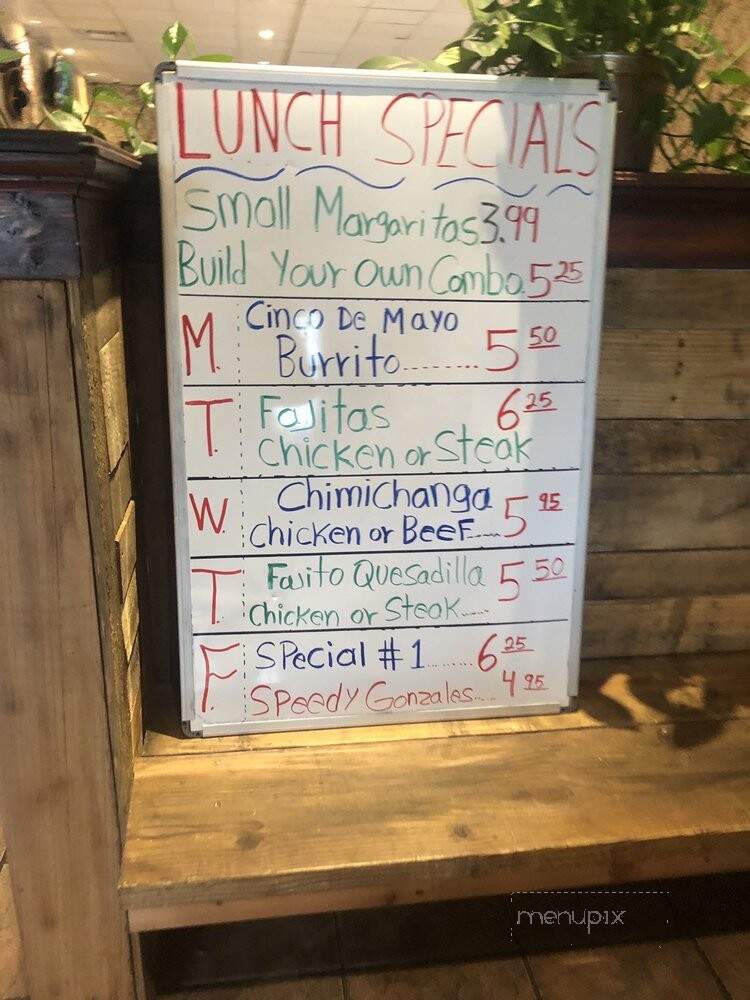 LUNCH SPECIAL'S
Small Margaritas 3.99
Build Your Own Combo. 5 25
M. Cinco De Mayo
Burrito......... 5 50
T. Fajitas 6 25
Chicken or Steak
W. Chimichanga
Chicken or Beef..... 5 95
T. Fajita Quesadilla 5 50
Chicken or Steak.....
F. Special #1........ 6 25
Speedy Gonzales..... 4 95
menupix